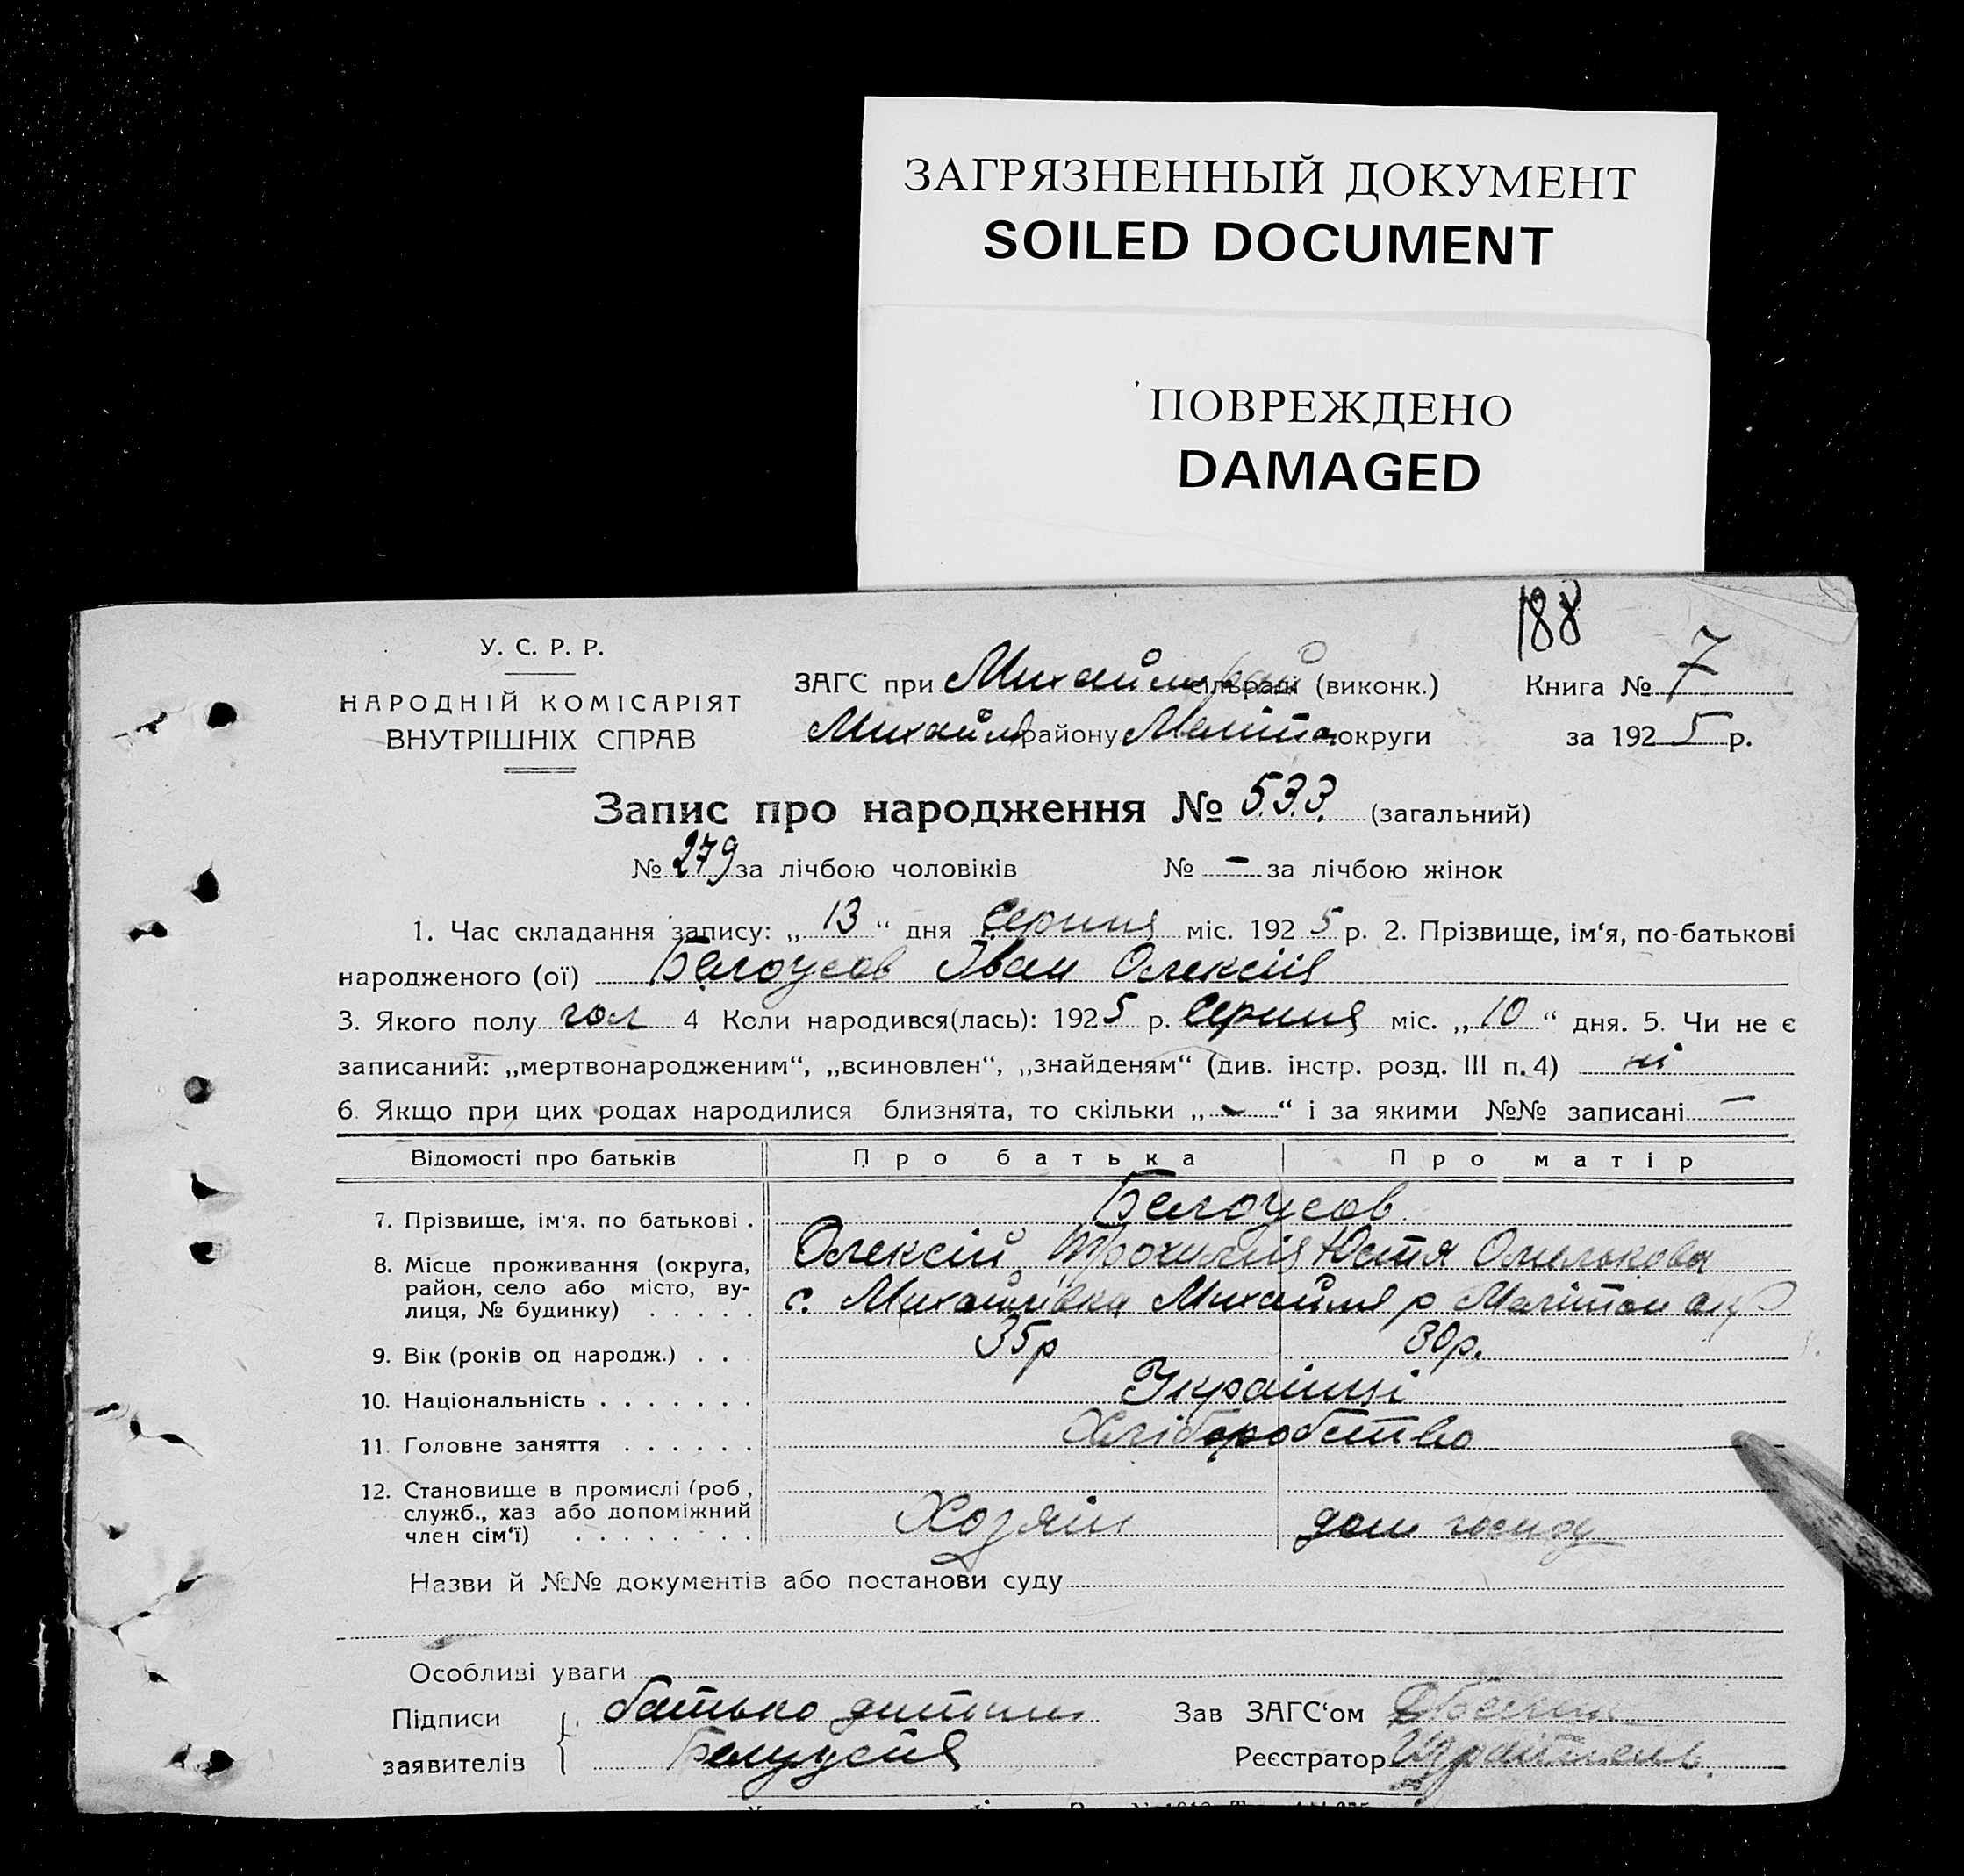 ЗАГРЯЗНЕННЫЙ ДОКУМЕНТ
SOILED DOCUMENT
ПОВРЕЖДЕНО
DAMAGED
188
У. С. Р. Р.
НАРОДНІЙ КОМІСАРІЯТ
ВНУТРІШНІХ СПРАВ
ЗАГС при сільраді (виконк.)
Книга № 7
району округи
за 1925 р.
Запис про народження № 533 (загальний)
№ 279 за лічбою чоловіків № — за лічбою жінок
1. Час складання запису: „ 13 “ дня Серпня міс. 1925 р. 2. Прізвище, ім‘я, по-батькові
народженого (ої) Белоусов Іван Олексія
3. Якого полу чол 4 Коли народився(лась): 1925 р. Серпня міс. „ 10 “ дня. 5. Чи не є
записаний: „мертвонародженим“, „всиновлен“, „знайденям“ (див. інстр. розд. III п. 4) ні
6. Якщо при цих родах народилися близнята, то скільки „ — “ і за якими №№ записані —
Відомості про батьків Про батька Про матір
7. Прізвище, ім‘я, по батькові . Белоусов
Олексій Юстя
8. Місце проживання (округа, район, село або місто, вулиця, № будинку) . . . . . с. Михайлівка Михайля р
9. Вік (років од народж.) . . . 35р 30р.
10. Національність . . . . . . . Українці
11. Головне заняття . . . . . . Хліборобство
12. Становище в промислі (роб, служб., хаз або допоміжний член сім‘ї) . . . . . . . . Хозяїн дом
Назви й №№ документів або постанови суду
Особливі уваги
Підписи заявителів батько дитини
Зав ЗАГС‘ом
Реєстратор